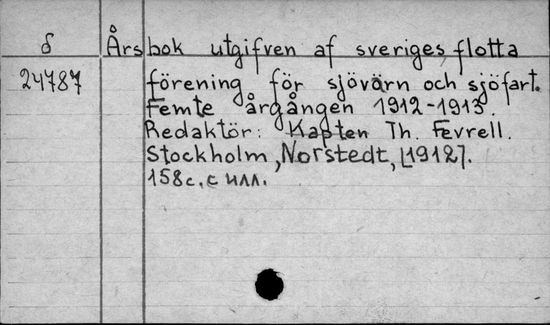 б Årsbok utgifven af sveriges flotta
24787 förening för sjövärn och sjöfart.
Femte årgången 1912-1913.
Redaktör: Kapten Th. Fevrell.
Stockholm, Norstedt, [1912].
158с. с илл.